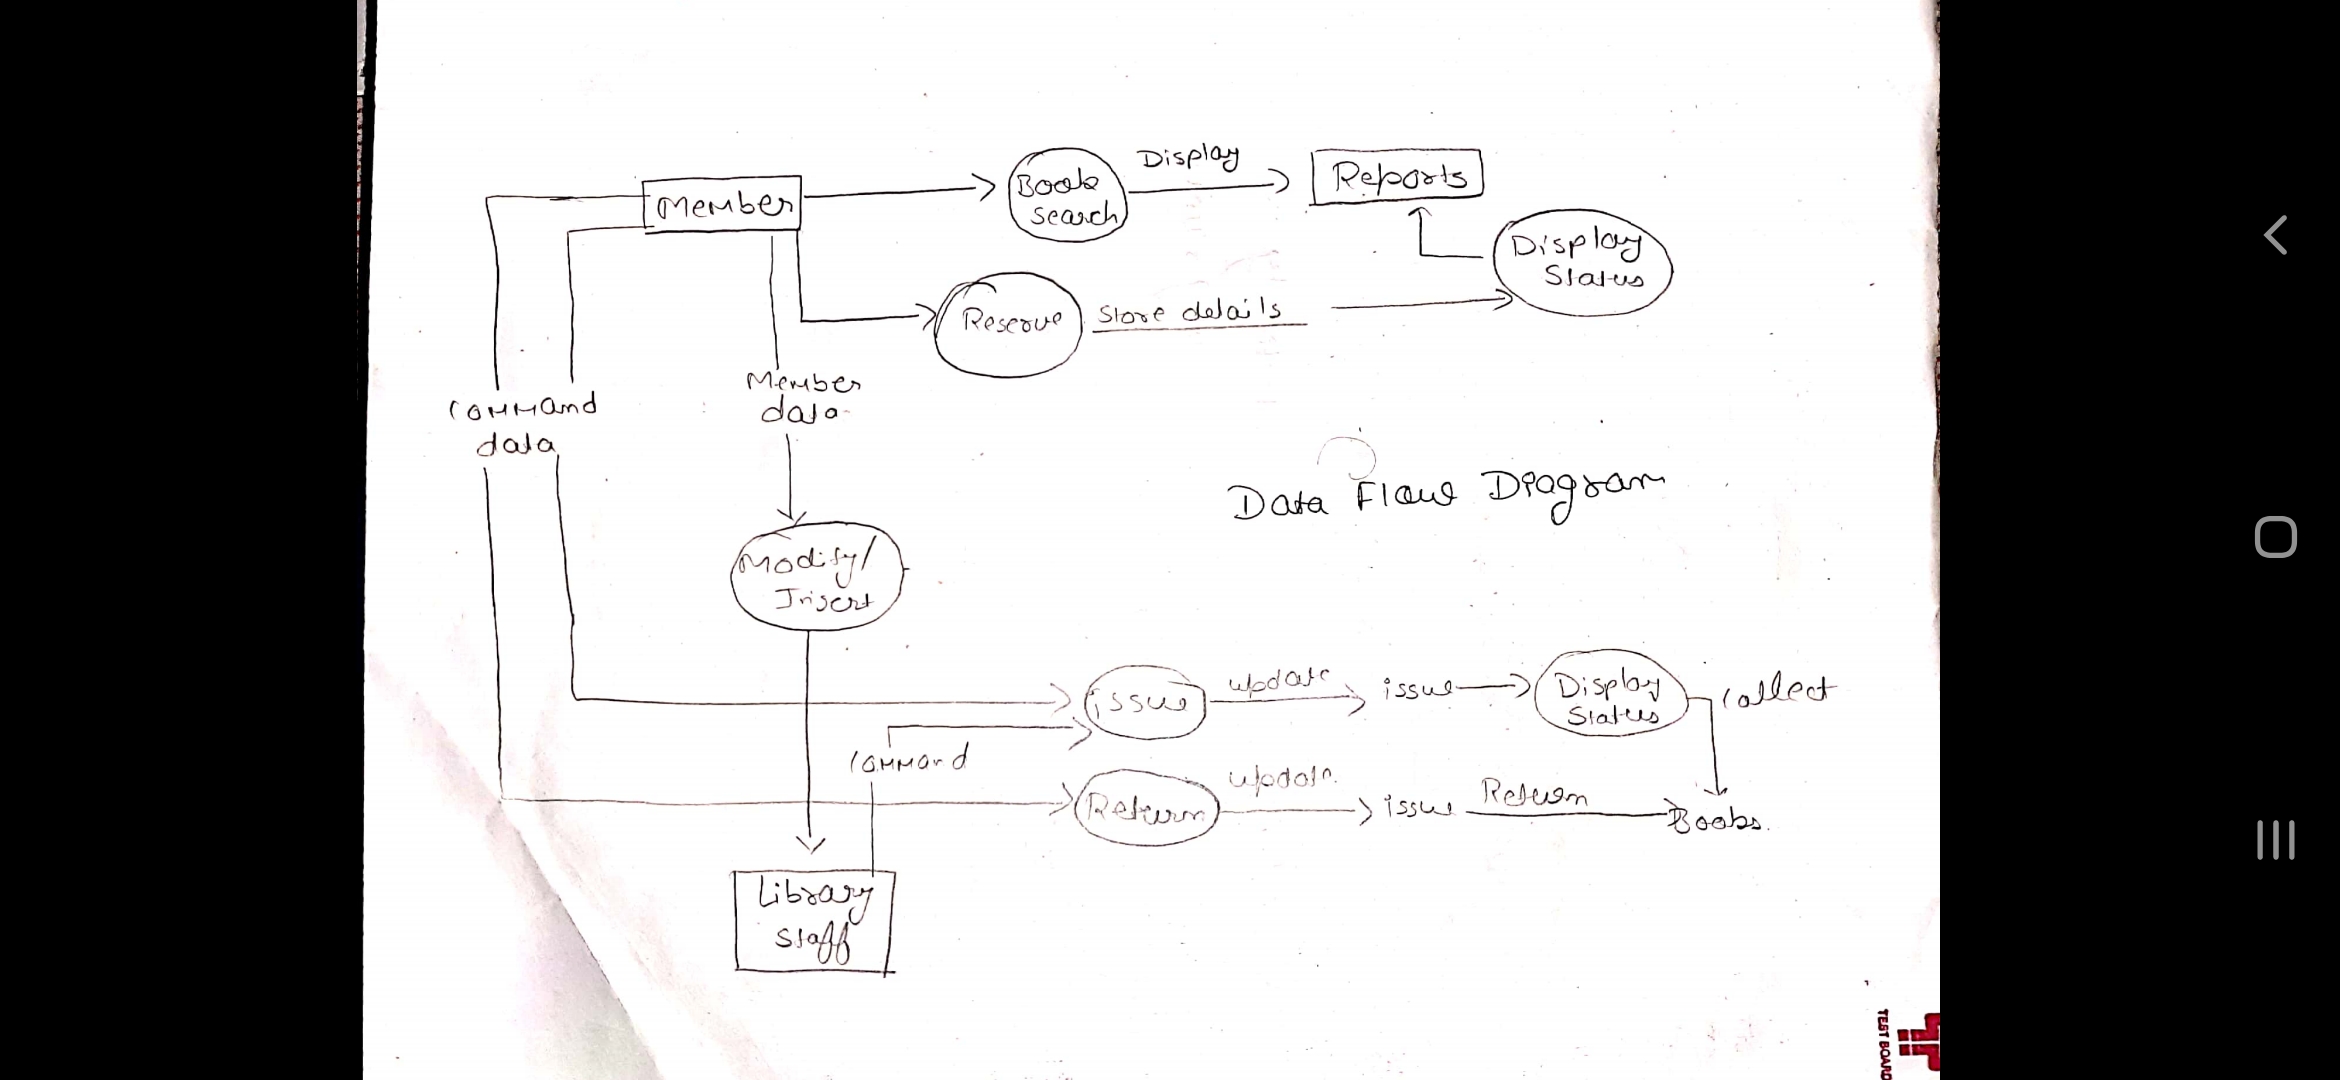 Member
Book
search
Display
Reports
Display
Status
Reserve
Store details
Member
data
Command
data
Data Flow Diagram
Modify/
Insert
issue
update
issue
Display
Status
collect
Command
Return
update
issue
Return
Books.
Library
staff
TEST BOARD